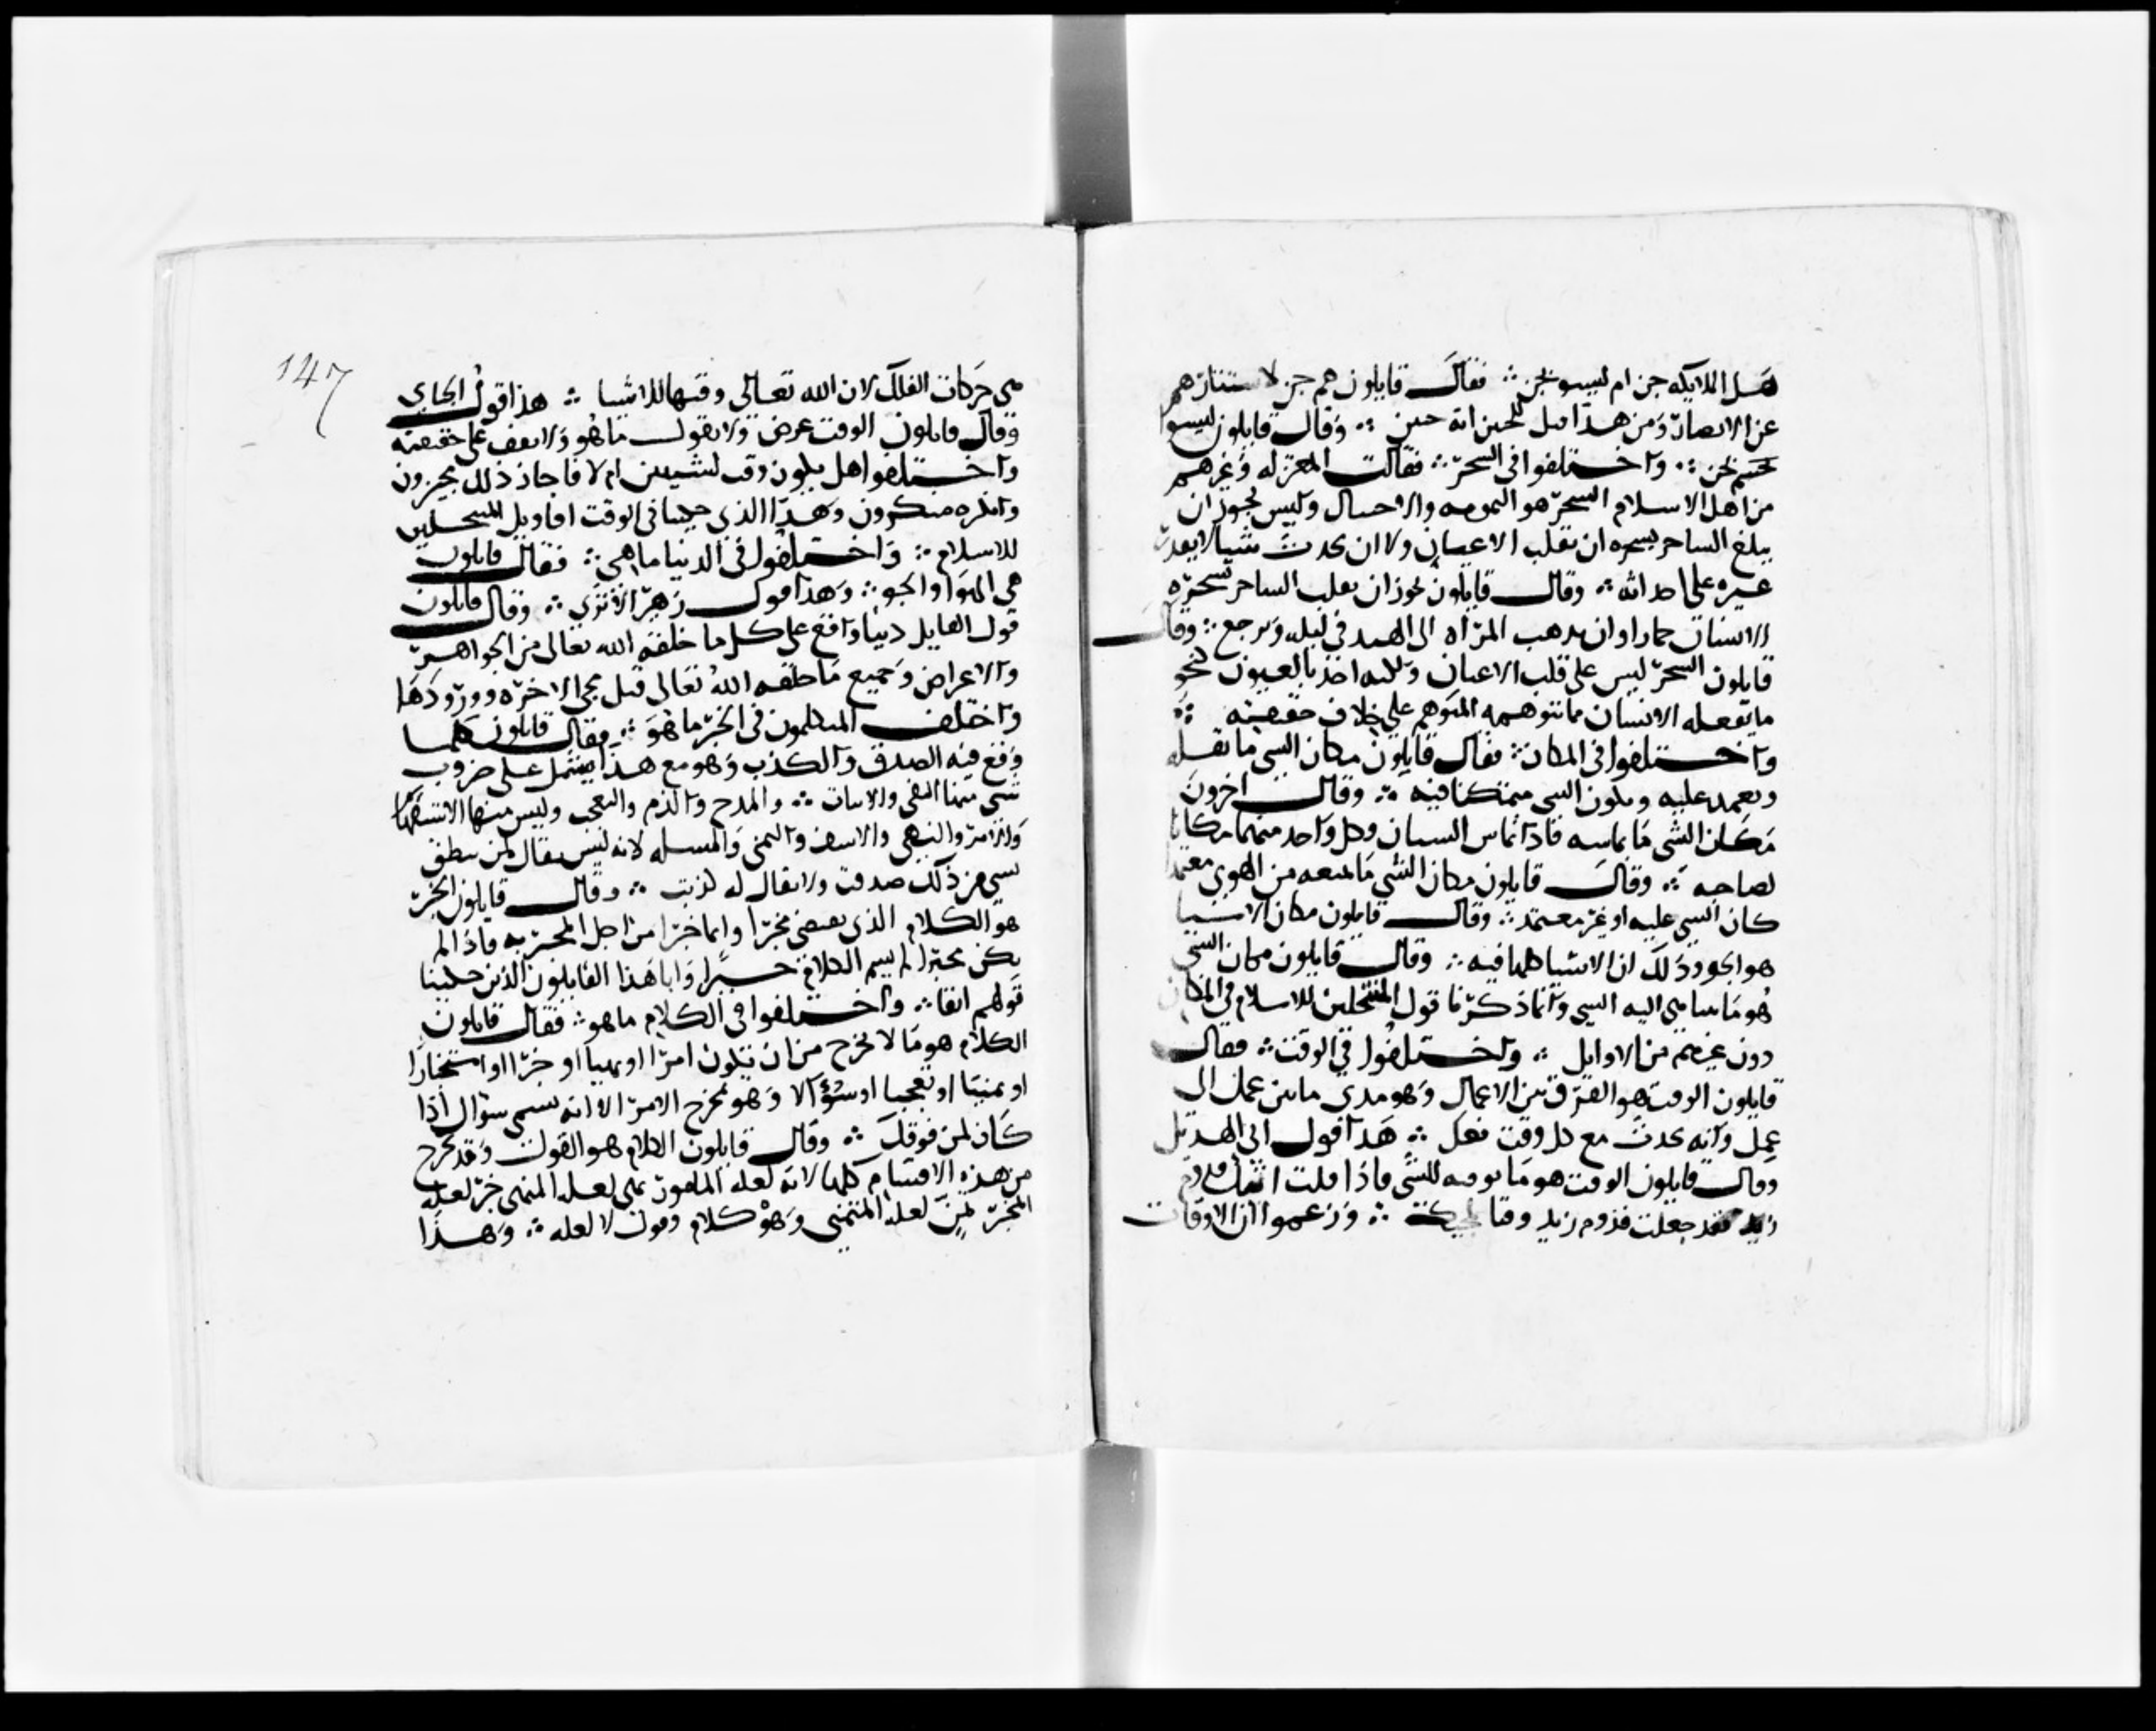 هل الملايكه جن ام ليسو بجن ∴ فقال قايلون هم جن لاستتارهم
عن الابصار ومن هذا قيل للجنين انه جنين ∴ وقال قايلون ليسوا
بجن ∴ واختلفوا فى السحر ∴ فقالت المعتزله وغيرهم
من اهل الاسلام السحر هو التمويه والاحتيال وليس يجوز ان
يبلغ الساحر بسحره ان يقلب الاعيان ولا ان يحدث شيا لا يقدر
غيره على احداثه ∴ وقال قايلون يجوز ان يقلب الساحر بسحره
الانسان حمارا وان يذهب المراه الى الهند فى ليله وترجع ∴ وقال
قايلون السحر ليس على قلب الاعيان ولكنه اخذ بالعيون نحو
ما يفعله الانسان مما يتوهمه المتوهم على خلاف حقيقته ∴
واختلفوا فى المكان ∴ فقال قايلون مكان الشى ما يقله
ويعتمد عليه ويكون الشى متمكنا فيه ∴ وقال اخرون
مكان الشى ما يماسه فاذا تماس الشيان فكل واحد منهما مكان
لصاحبه ∴ وقال قايلون مكان الشى ما يمنعه من الهوى معتمدا
كان الشى عليه او غير معتمد ∴ وقال قايلون مكان الاشيا
هو الجو وذلك ان الاشيا كلها فيه ∴ وقال قايلون مكان الشى
هو ما يتناهى اليه الشى وانما ذكرنا قول المنتحلين للاسلام فى المكان
دون غيرهم من الاوايل ∴ واختلفوا فى الوقت ∴ فقال
قايلون الوقت هو الفرق بين الاعمال وهو مدى ما بين عمل الى
عمل وانه يحدث مع كل وقت فعل ∴ هذا قول ابى الهذيل
وقال قايلون الوقت هو ما توقته للشى فاذا قلت اتيك قدوم
زيد فقد جعلت قدوم زيد وقتا لمجيك ∴ وزعموا ان الاوقات
147
هى حركات الفلك لان الله تعالى وقتها للاشيا ∴ هذا قول الجباى
وقال قايلون الوقت عرض ولا نقول ما هو ولا نقف على حقيقته
واختلفوا هل يكون وقت لشيين ام لا فاجاز ذلك مجيزون
وانكره منكرون وهذا الذى حكينا فى الوقت اقاويل المنتحلين
للاسلام ∴ واختلفوا فى الدنيا ما هى ∴ فقال قايلون
هى الهوا والجو ∴ وهذا قول زهير الاثرى ∴ وقال قايلون
قول القايل دنيا واقع على كل ما خلقه الله تعالى من الجواهر
والاعراض وجميع ما خلقه الله تعالى قبل مجى الاخره وورودها
واختلف المتكلمون فى الخبر ما هو ∴ فقال قايلون كلما
وقع فيه الصدق والكذب وهو مع هذا يشتمل على ضروب
شتى منها النفى والاثبات ∴ والمدح والذم والتعجب وليس منها الاستفهام
والامر والنهى والاسف والتمنى والمسله لانه ليس يقال لمن ينطق
بشى من ذلك صدقت ولا يقال له كذبت ∴ وقال قايلون الخبر
هو الكلام الذى يقتضى مخبرا وانما خبرا من اجل المخبر به فاذا لم
يكن مخبرا لم يسم الكلام خبرا وابا هذا القايلون الذين حكينا
قولهم انفا ∴ واختلفوا فى الكلام ما هو ∴ فقال قايلون
الكلام هو ما لا يخرج من ان يكون امرا او نهيا او خبرا او استخبارا
او تمنيا او تعجبا او سؤالا وهو مخرج الامر الا انه يسمى سؤال اذا
كان لمن فوقك ∴ وقال قايلون الكلام هو القول وقد يخرج
من هذه الاقسام كلها لانه لعله المامور نهى لعله المنهى خبر لعله
المخبر تمن لعله المتمنى وهو كلام وقول لا لعله ∴ وهذا